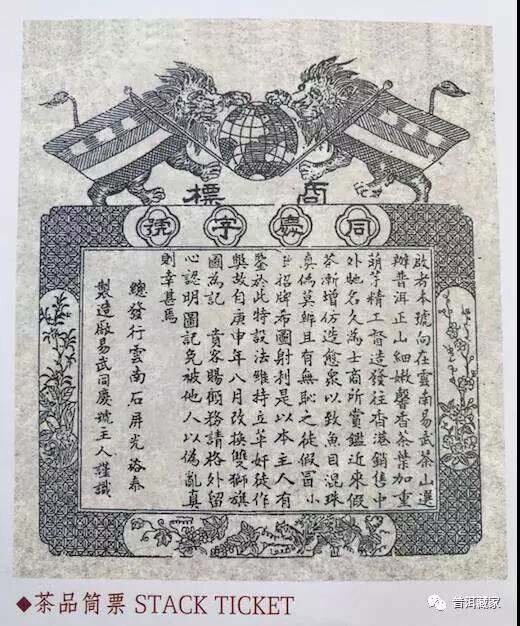 商標
同慶字號
啟者本號向在雲南易武茶山選
辦普洱正山細嫩馨香茶葉加重
萌芽精工督造發往香港銷售中
外馳名久為士商所賞鑑近來假
茶漸增仿造愈眾以致魚目混珠
真偽莫辨且有無恥之徒假冒小
招牌希圖射利是以本主人有
鑒於此特設法維持立革奸徒作
獘故自庚申年八月改換雙獅旗
圖為記 貴客賜顧務請格外留
心認明圖記免被他人以偽亂真
則幸甚焉
總發行雲南石屏光裕泰
製造廠易武同慶號主人謹識
◆茶品简票 STACK TICKET
普洱藏家